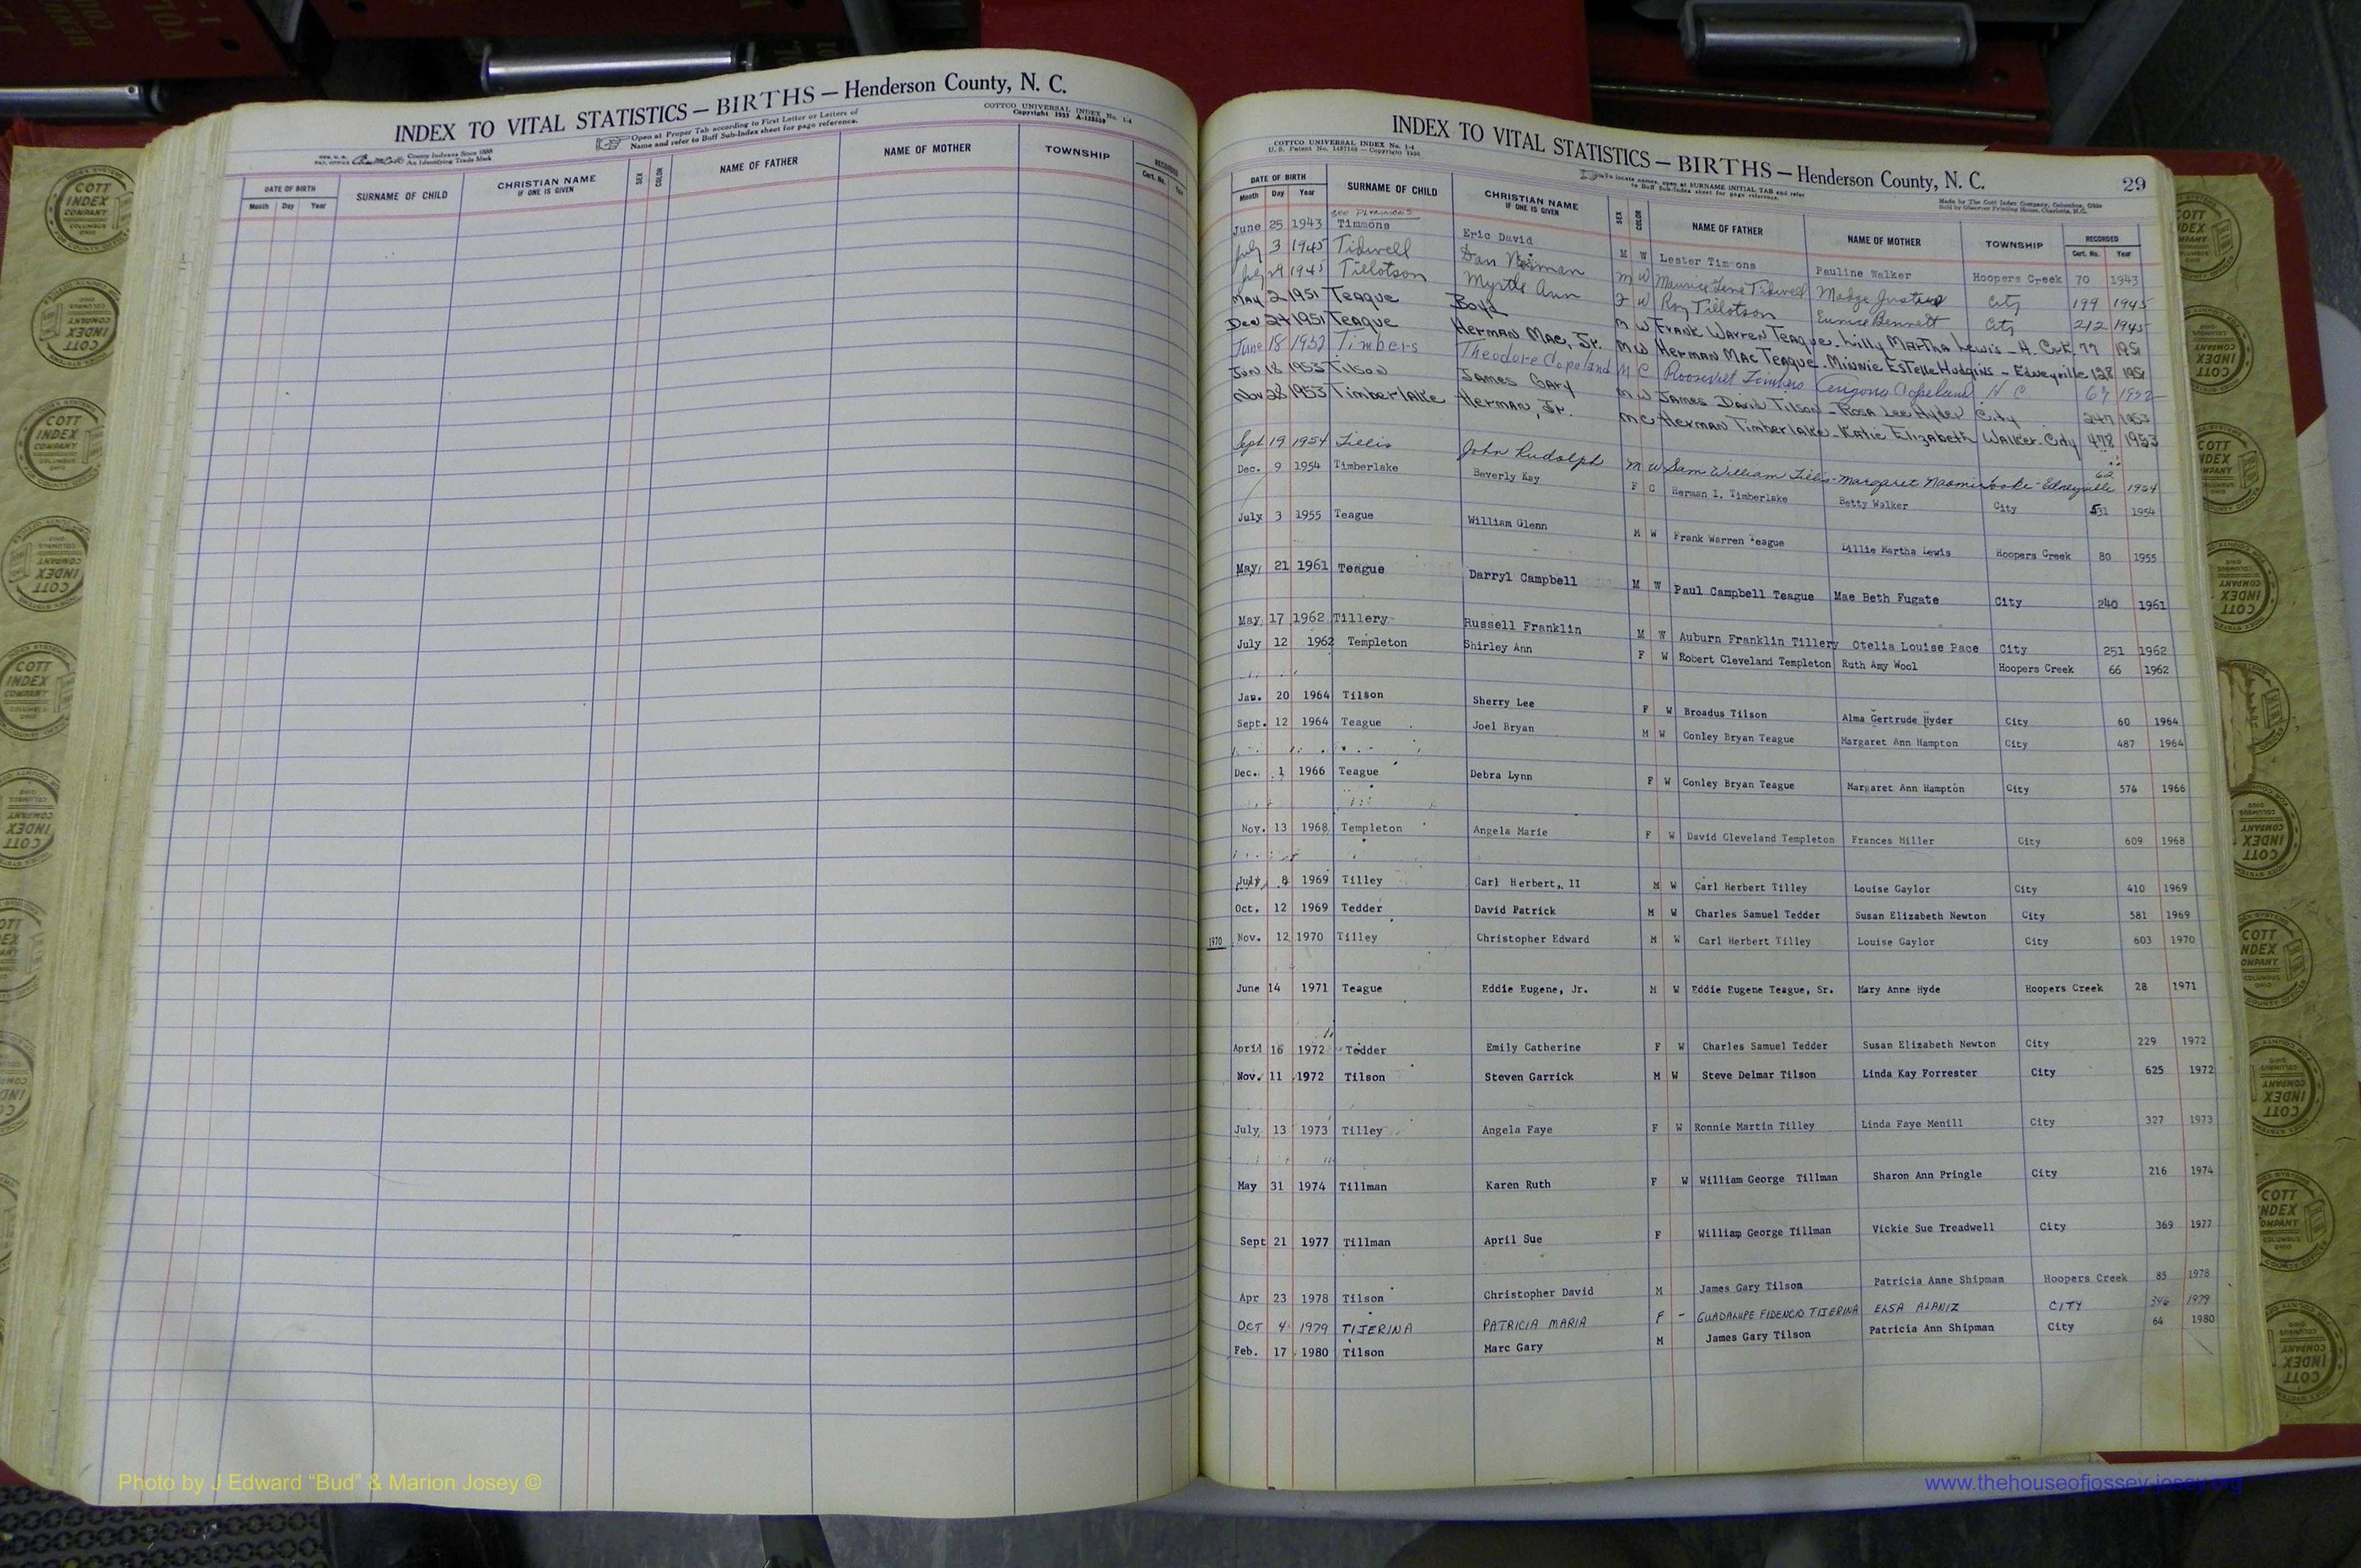 INDEX TO VITAL STATISTICS — BIRTHS — Henderson County, N. C.
COTTCO UNIVERSAL INDEX No. 1-4
Open at Proper Tab according to First Letter or Letters of
Name and refer to Buff Sub-Index sheet for page reference.
County Indexes Since 1888
An Identifying Trade Mark
DATE OF BIRTH SURNAME OF CHILD CHRISTIAN NAME IF ONE IS GIVEN SEX COLOR NAME OF FATHER NAME OF MOTHER TOWNSHIP RECORDED
Month Day Year Cert. No.
INDEX TO VITAL STATISTICS — BIRTHS — Henderson County, N. C. 29
COTTCO UNIVERSAL INDEX No. 1-4
To locate names, open at SURNAME INITIAL TAB and refer
to Buff Sub-Index sheet for page reference.
Made by The Cott Index Company, Columbus, Ohio
Sold by Observer Printing House, Charlotte, N.C.
DATE OF BIRTH SURNAME OF CHILD CHRISTIAN NAME IF ONE IS GIVEN SEX COLOR NAME OF FATHER NAME OF MOTHER TOWNSHIP RECORDED
Month Day Year Cert. No. Year
June 25 1943 Timmons Eric David M W Lester Timmons Pauline Walker Hoopers Creek 70 1943
July 3 1945 Tidwell Dan Norman M W Maurice Gene Tidwell Madge Justus City 199 1945
July 29 1945 Tillotson Myrtle Ann F W Roy Tillotson Eunice Bennett City 212 1945
May 2 1951 Teague Boyd M W Frank Warren Teague - Lilly Martha Lewis - H. Crk. 77 1951
Dec 24 1951 Teague Herman Mac, Jr. M W Herman Mac Teague - Minnie Estelle Hudgins - Edneyville 128 1951
June 18 1952 Timbers Theodore Copeland M C Roosevelt Timbers Copeland H C 67 1952
Jan 18 1953 Tilson James Gary M W James David Tilson - Rosa Lee Hyder City 247 1953
Nov 28 1953 Timberlake Herman, Jr. M C Herman Timberlake - Katie Elizabeth Walker - City 478 1953
Sept 19 1954 Tillis John Rudolph M W Sam William Tillis - Margaret Naomi - Edneyville 62 1954
Dec. 9 1954 Timberlake Beverly Kay F C Herman I. Timberlake Betty Walker City 531 1954
July 3 1955 Teague William Glenn M W Frank Warren Teague Lillie Martha Lewis Hoopers Creek 80 1955
May 21 1961 Teague Darryl Campbell M W Paul Campbell Teague Mae Beth Fugate City 240 1961
May 17 1962 Tillery Russell Franklin M W Auburn Franklin Tillery Otelia Louise Pace City 251 1962
July 12 1962 Templeton Shirley Ann F W Robert Cleveland Templeton Ruth Amy Wool Hoopers Creek 66 1962
Jan. 20 1964 Tilson Sherry Lee F W Broadus Tilson Alma Gertrude Hyder City 60 1964
Sept. 12 1964 Teague Joel Bryan M W Conley Bryan Teague Margaret Ann Hampton City 487 1964
Dec. 1 1966 Teague Debra Lynn F W Conley Bryan Teague Margaret Ann Hampton City 574 1966
Nov. 13 1968 Templeton Angela Marie F W David Cleveland Templeton Frances Miller City 609 1968
July 8 1969 Tilley Carl Herbert, II M W Carl Herbert Tilley Louise Gaylor City 410 1969
Oct. 12 1969 Tedder David Patrick M W Charles Samuel Tedder Susan Elizabeth Newton City 581 1969
1970 Nov. 12 1970 Tilley Christopher Edward M W Carl Herbert Tilley Louise Gaylor City 603 1970
June 14 1971 Teague Eddie Eugene, Jr. M W Eddie Eugene Teague, Sr. Mary Anne Hyde Hoopers Creek 28 1971
April 16 1972 Tedder Emily Catherine F W Charles Samuel Tedder Susan Elizabeth Newton City 229 1972
Nov. 11 1972 Tilson Steven Garrick M W Steve Delmar Tilson Linda Kay Forrester City 625 1972
July 13 1973 Tilley Angela Faye F W Ronnie Martin Tilley Linda Faye Menill City 327 1973
May 31 1974 Tillman Karen Ruth F W William George Tillman Sharon Ann Pringle City 216 1974
Sept 21 1977 Tillman April Sue F William George Tillman Vickie Sue Treadwell City 369 1977
Apr 23 1978 Tilson Christopher David M James Gary Tilson Patricia Anne Shipman Hoopers Creek 85 1978
OCT 4 1979 TIJERINA PATRICIA MARIA F - GUADALUPE FIDENCIO TIJERINA ELSA ALANIZ CITY 346 1979
Feb. 17 1980 Tilson Marc Gary M James Gary Tilson Patricia Ann Shipman City 64 1980
Photo by J Edward “Bud” & Marion Josey ©
www.thehouseofjossey-josey.org